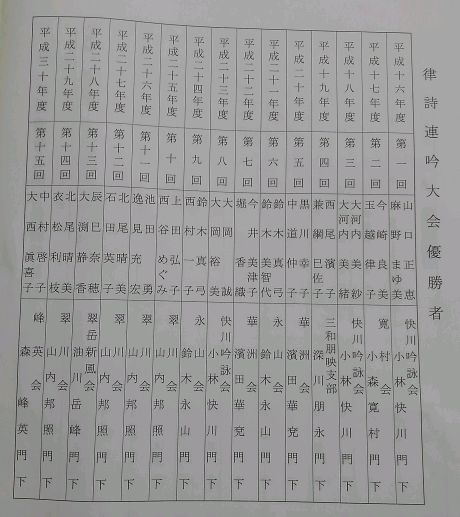 律詩連吟大会優勝者
平成十六年度 第一回 山口正恵 麻野まゆ美 快川吟詠会 小林快川門下
平成十七年度 第二回 今崎良美 玉越律子 寛村会 小森寛村門下
平成十八年度 第三回 大河内美紗 大河内美緒 快川吟詠会 小林快川門下
平成十九年度 第四回 西尾濱子 兼綱巳佐子 三和朋映支部 深川朋永門下
平成二十年度 第五回 黒川幸子 中道仲子 華洲会 濱田華兗門下
平成二十一年度 第六回 鈴木真弓 鈴木美智代 永山会 鈴木永山門下
平成二十二年度 第七回 今井美津子 堀香織 華洲会 濱田華兗門下
平成二十三年度 第八回 大岡誠 大岡裕美 快川吟詠会 小林快川門下
平成二十四年度 第九回 鈴木真弓 西村一子 永山会 鈴木永山門下
平成二十五年度 第十回 上田弘子 西谷めぐみ 翠川会 山内邦照門下
平成二十六年度 第十一回 池田勇 逸見充宏 翠川会 山内邦照門下
平成二十七年度 第十二回 北尾晴美 石田英子 翠川会 山内邦照門下
平成二十八年度 第十三回 辰巳奈穂 大渕静香 翠岳新風会 油川岳峰門下
平成二十九年度 第十四回 北尾晴美 衣松利枝 翠川会 山内邦照門下
平成三十年度 第十五回 中村啓子 大西眞喜子 峰英会 森峰英門下